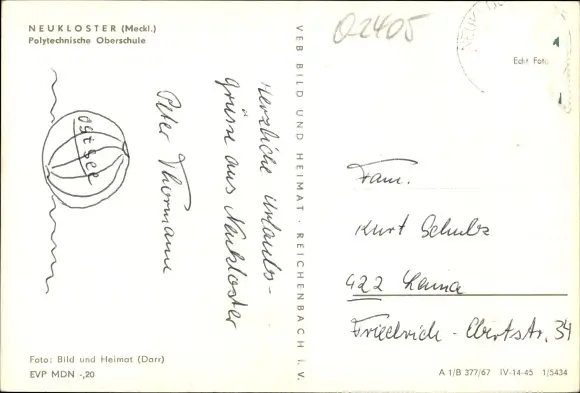 NEUKLOSTER (Meckl.)
Polytechnische Oberschule
Ostsee
Herzliche Urlaubs-
grüsse aus Neukloster
Peter Thormann
Foto: Bild und Heimat (Darr)
EVP MDN -,20
VEB BILD UND HEIMAT · REICHENBACH i. V.
02405
NEUKLO
Echt Foto
Fam.
Kurt Schulz
422 Leuna
Friedrich-Ebertstr. 34
A 1/B 377/67 IV-14-45 1/5434